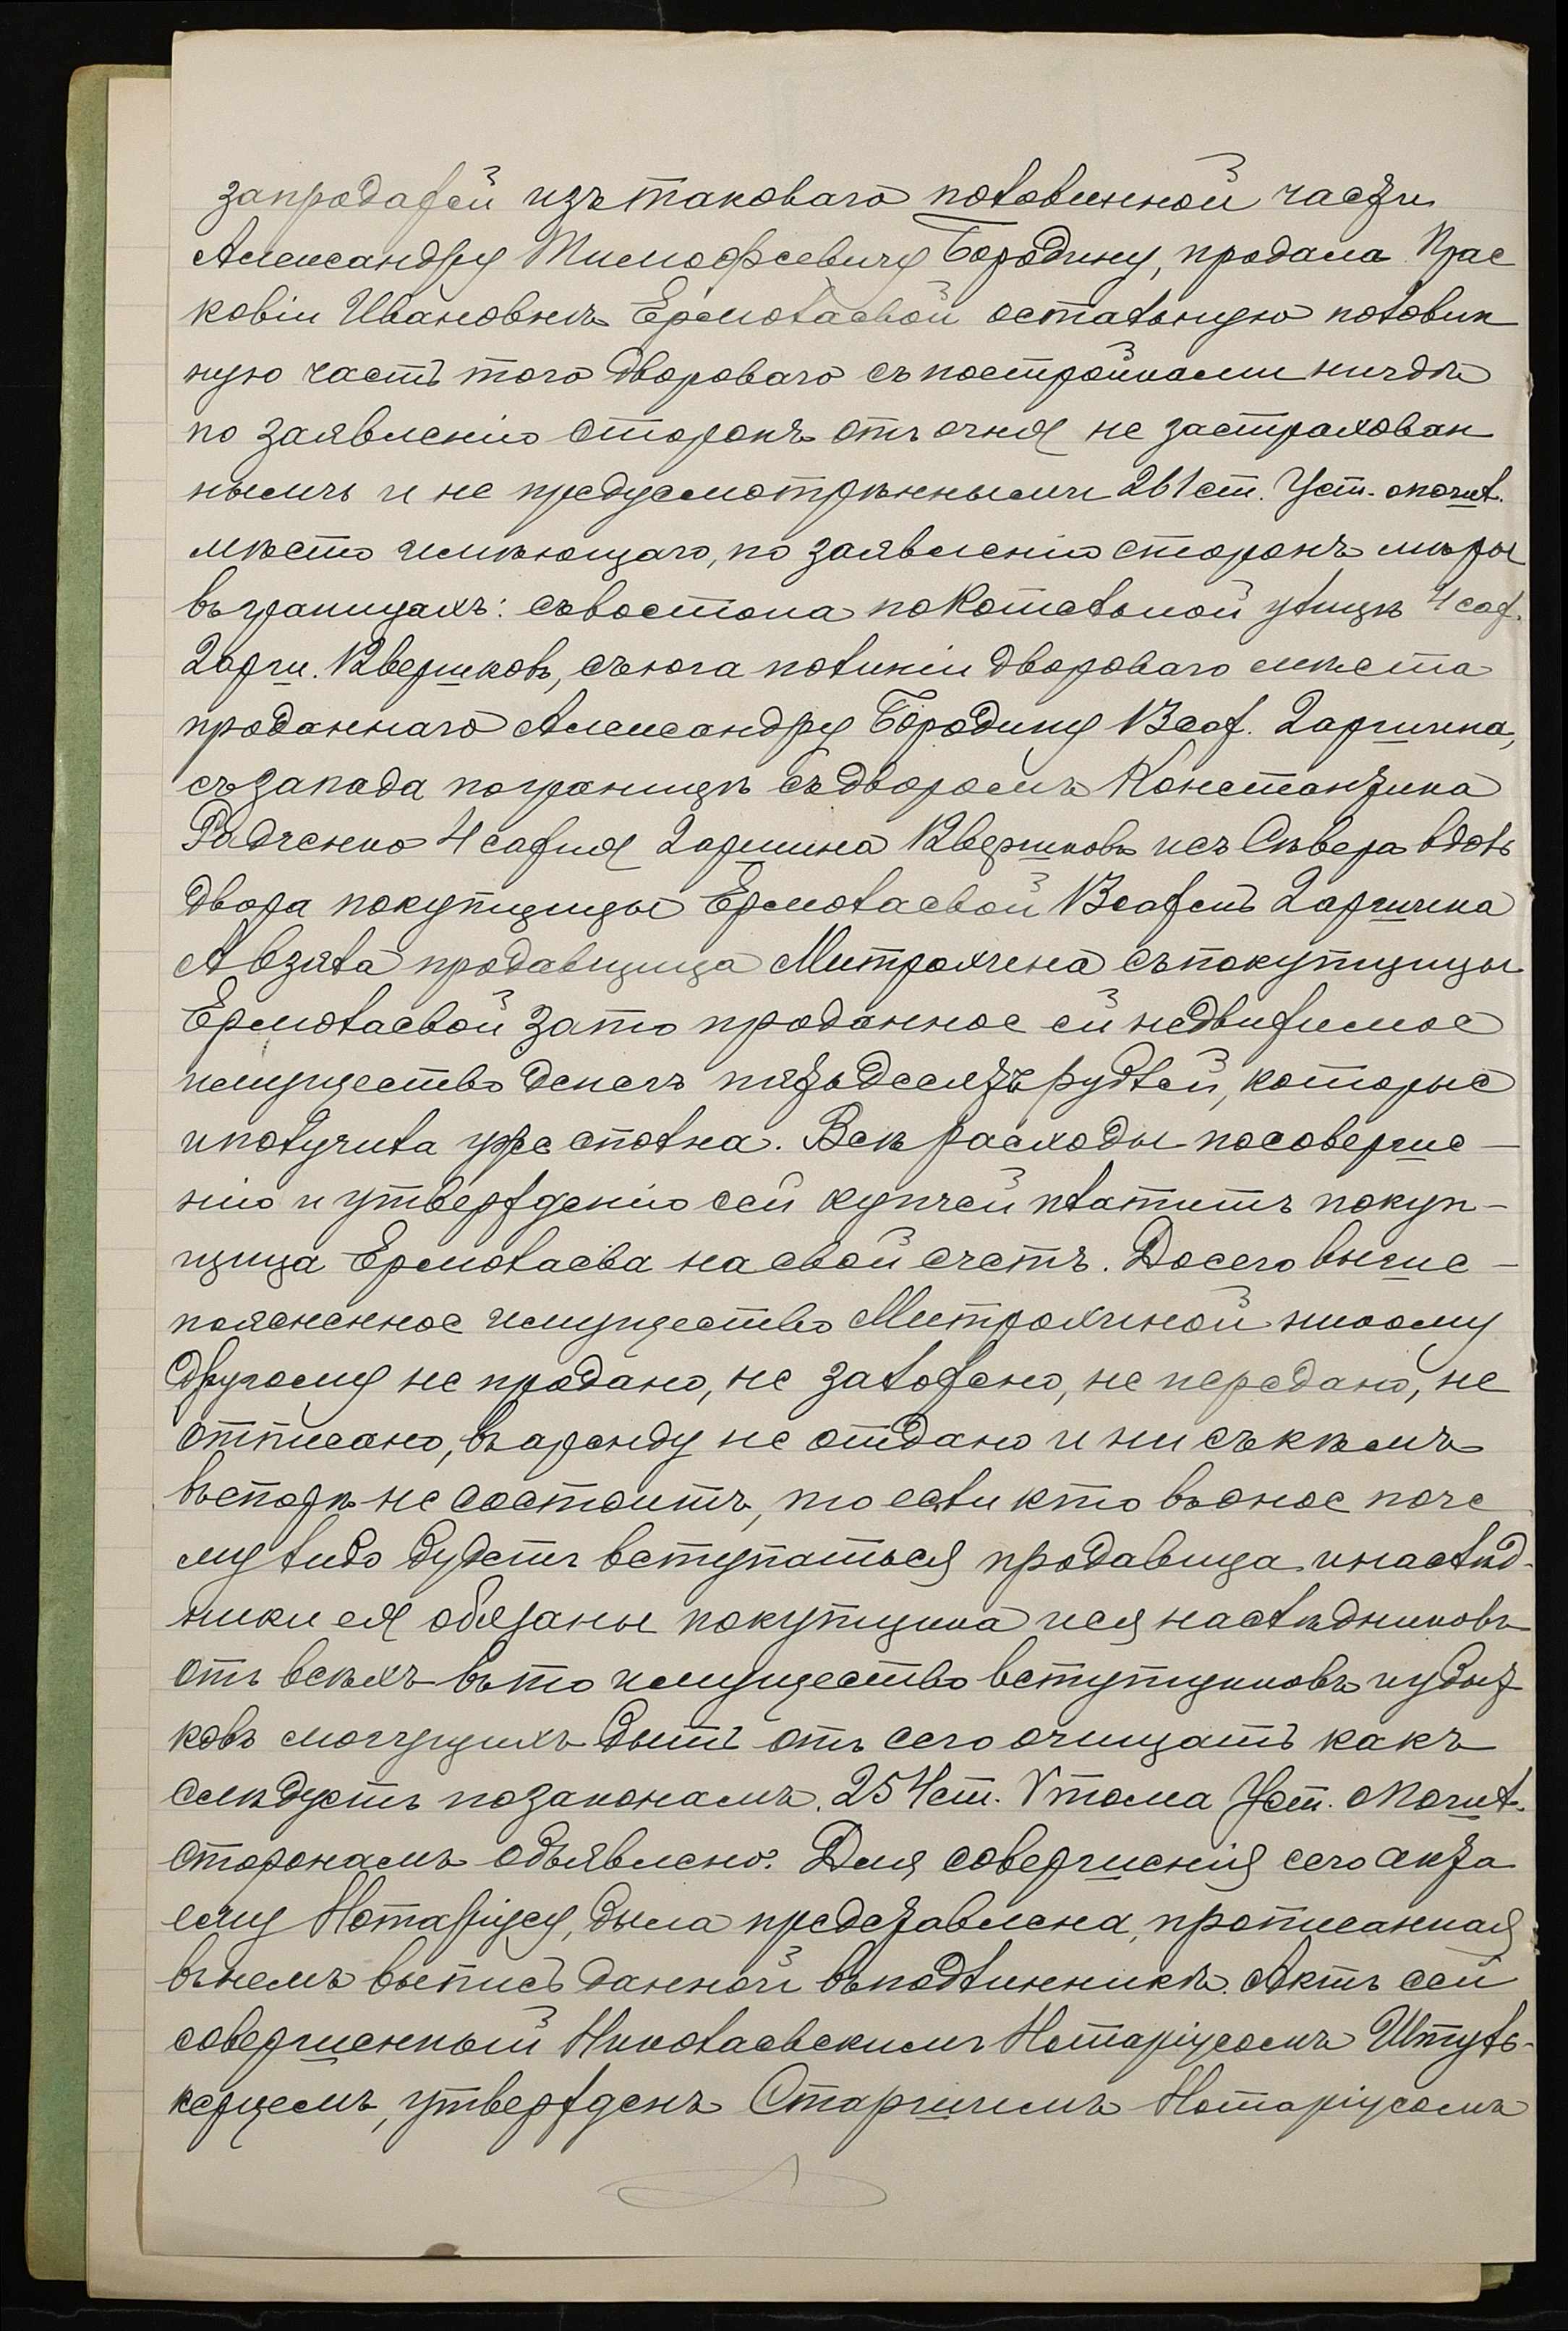 запродажей изъ таковаго половинной части
Александру Тимофеевичу Бородину, продала Прас
ковіи Ивановнѣ Ермолаевой остальную половин
ную часть того двороваго съ постройками нигдѣ
по заявленію сторонъ отъ огня не застрахован
нымъ и не предусмотрѣнными 261 ст. Уст. о пошл.
мѣсто имѣющаго, по заявленію сторонъ мѣры
въ границахъ: съ востока по Котельной улицѣ 4 саж.
2 арш. 12 вершковъ, съ юга по линіи двороваго мѣста
проданнаго Александру Бородину 13 саж. 2 аршина,
съ запада по границѣ съ дворомъ Константина
Радченко 4 сажня 2 аршина 12 вершковъ и съ Сѣвера вдоль
двора покупщицы Ермолаевой 13 сажень 2 аршина
А взяла продавщица Митрохина съ покупщицы
Ермолаевой за то проданное ей недвижимое
имущество денегъ пятьдесятъ рублей, которые
и получила уже сполна. Всѣ расходы по соверше-
нію и утвержденію сей купчей платитъ покуп-
щица Ермолаева на свой счетъ. До сего выше-
поясненное имущество Митрохиной никому
другому не продано, не заложено, не передано, не
отписано, въ аренду не отдано и ни съ кѣмъ
въ спорѣ не состоитъ, то если кто въ оное поче
му либо будетъ вступаться продавица и наслѣд-
ники ея обязаны покупщика и ея наслѣдниковъ
отъ всѣхъ въ то имущество вступщиковъ и убыт
ковъ могущихъ быть отъ сего очищать какъ
слѣдуетъ по законамъ. 254 ст. V тома Уст. о Пошл.
сторонамъ объявлено. Для совершенія сего акта
ему Нотаріусу, была представлена, прописанная
въ немъ выпись данной въ подлинникѣ. Актъ сей
совершенный Николаевскимъ Нотаріусомъ Штуль-
керцемъ, утвержденъ Старшимъ Нотаріусомъ